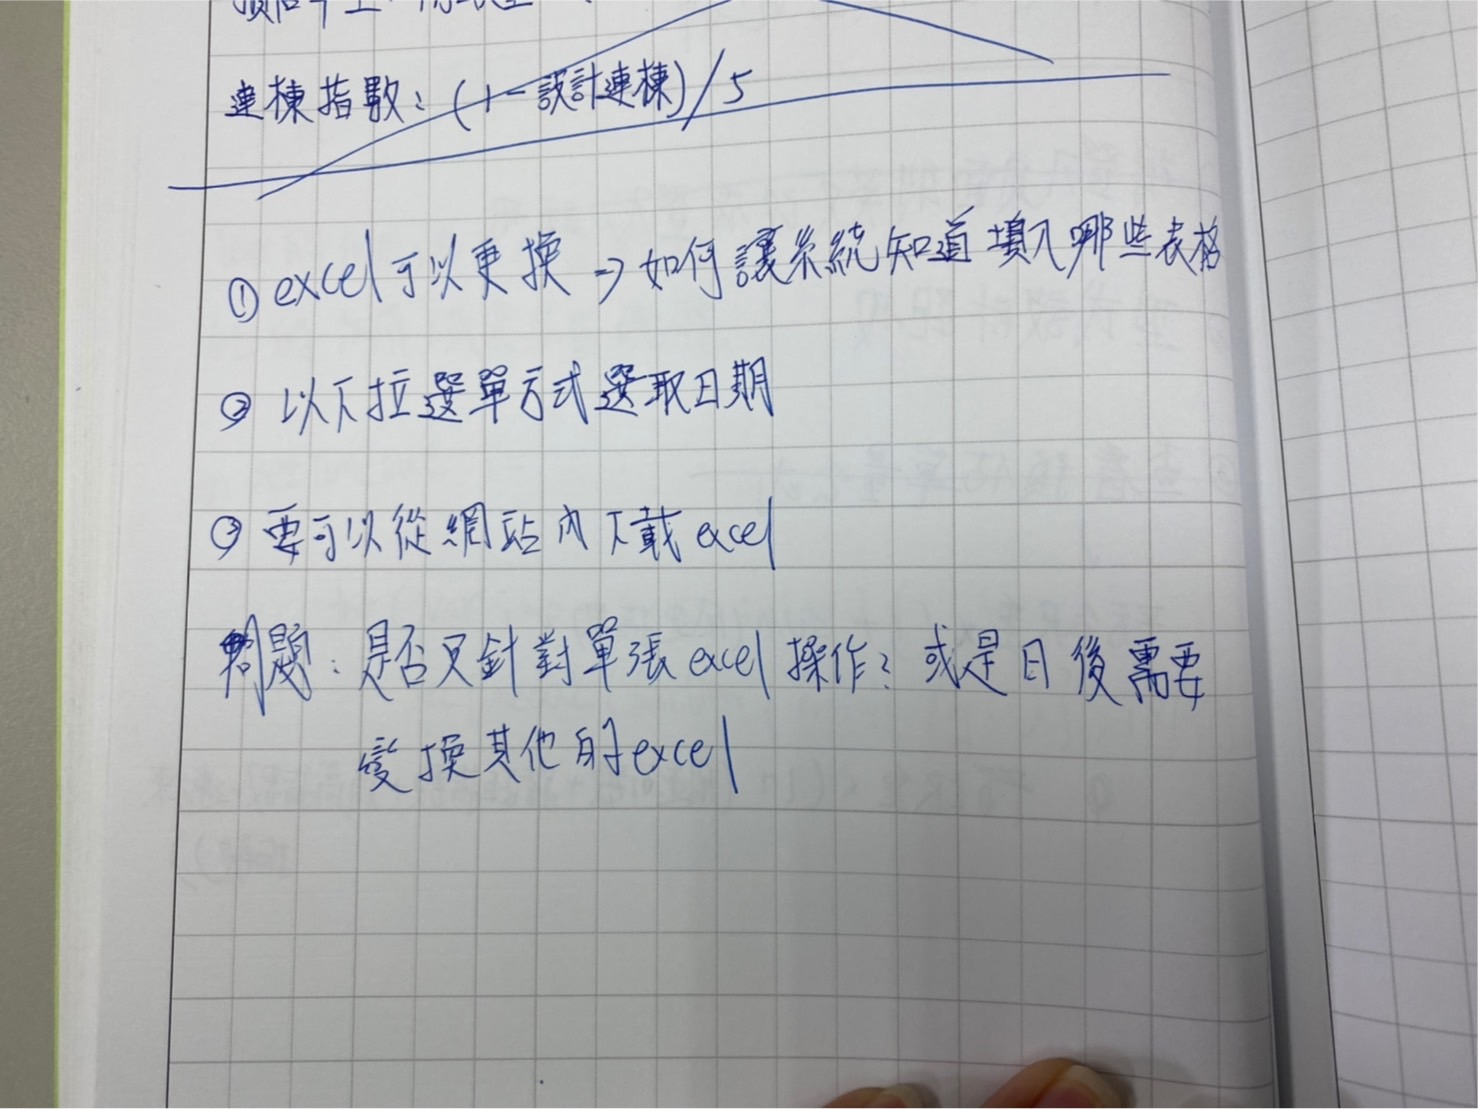 連棟指數：(1－設計連棟)/5
① excel可以更換 → 如何讓系統知道填入哪些表格
② 以下拉選單方式選取日期
③ 要可以從網站內下載excel
問題：是否只針對單張excel操作？或是日後需要
變換其他的excel